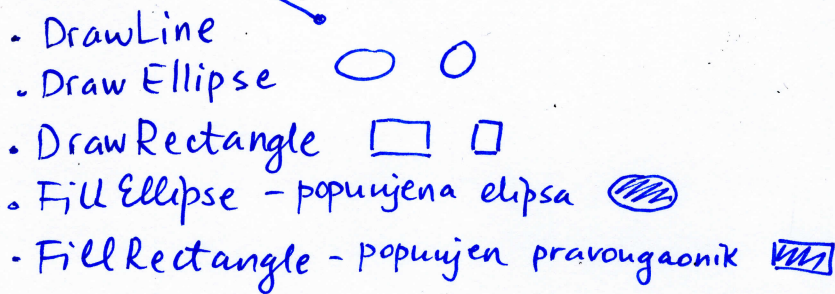 • DrawLine
• DrawEllipse
• DrawRectangle
• FillEllipse - popunjena elipsa
• FillRectangle - popunjen pravougaonik